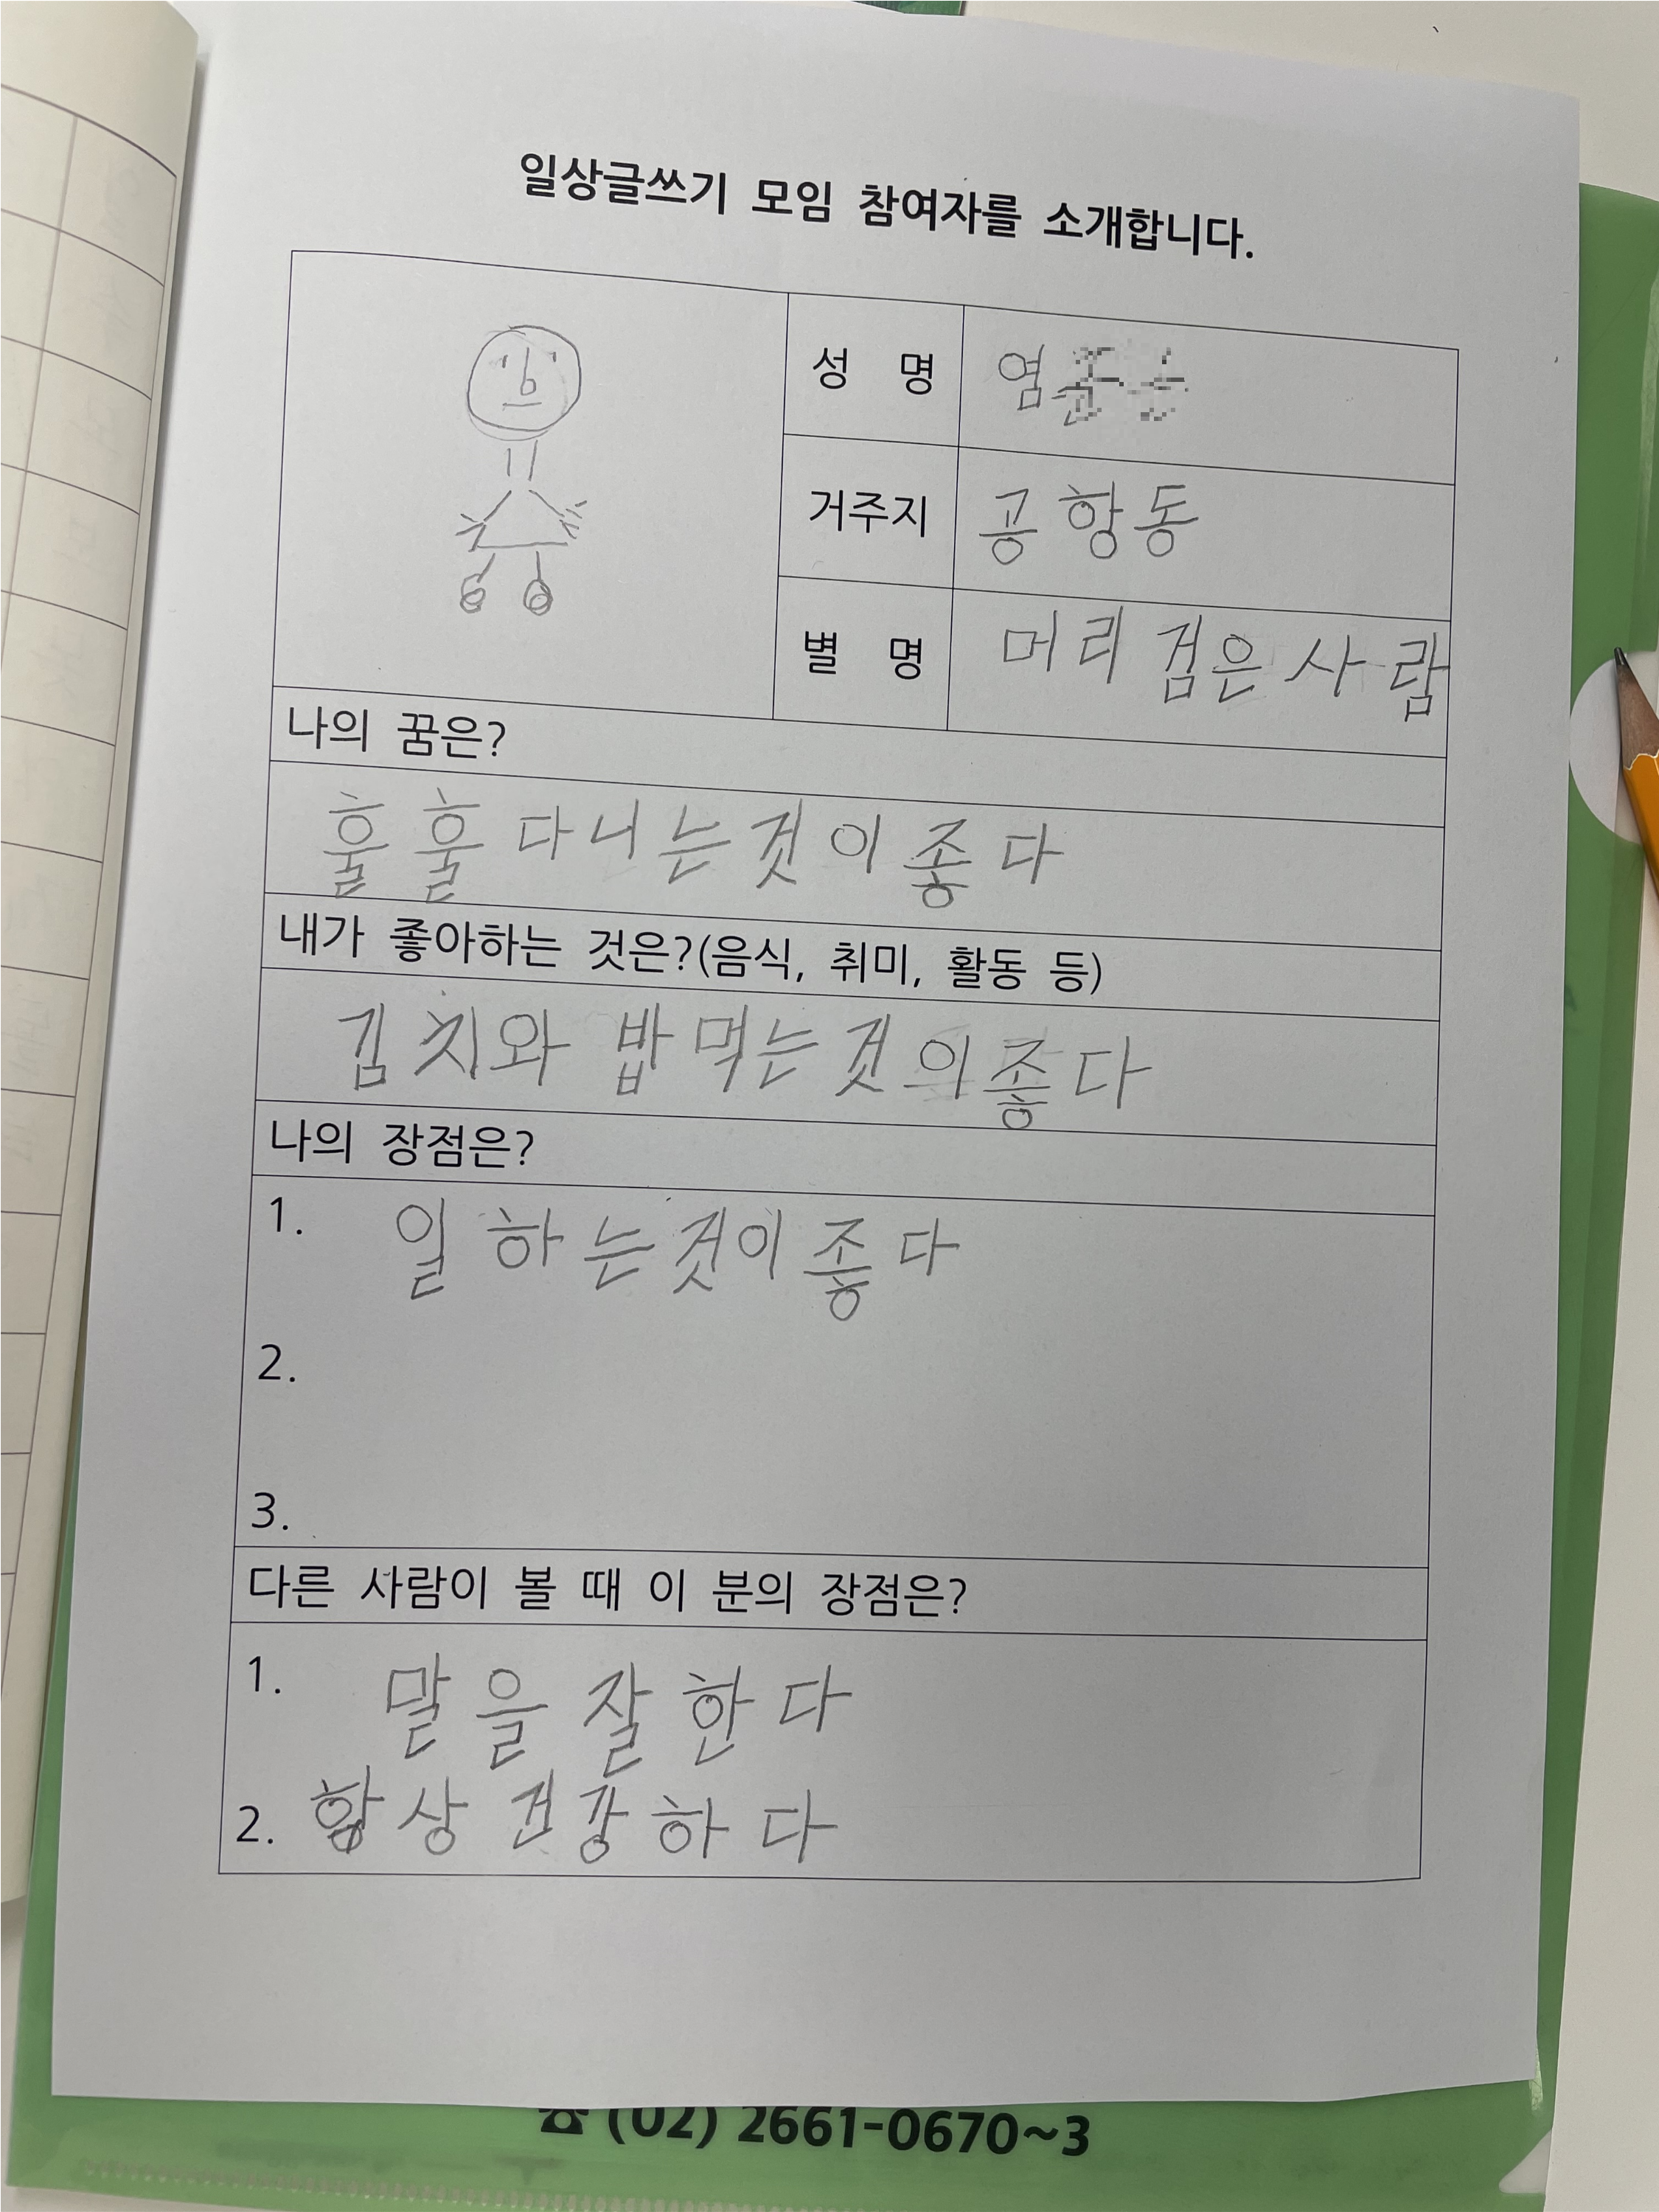 일상글쓰기 모임 참여자를 소개합니다.
성 명 염
거주지 공항동
별 명 머리 검은 사람
나의 꿈은?
훌훌 다니는것이좋다
내가 좋아하는 것은?(음식, 취미, 활동 등)
김치와 밥먹는것의좋다
나의 장점은?
1. 일하는것이좋다
2.
3.
다른 사람이 볼 때 이 분의 장점은?
1. 말을 잘한다
2. 항상 건강하다
☎ (02) 2661-0670~3